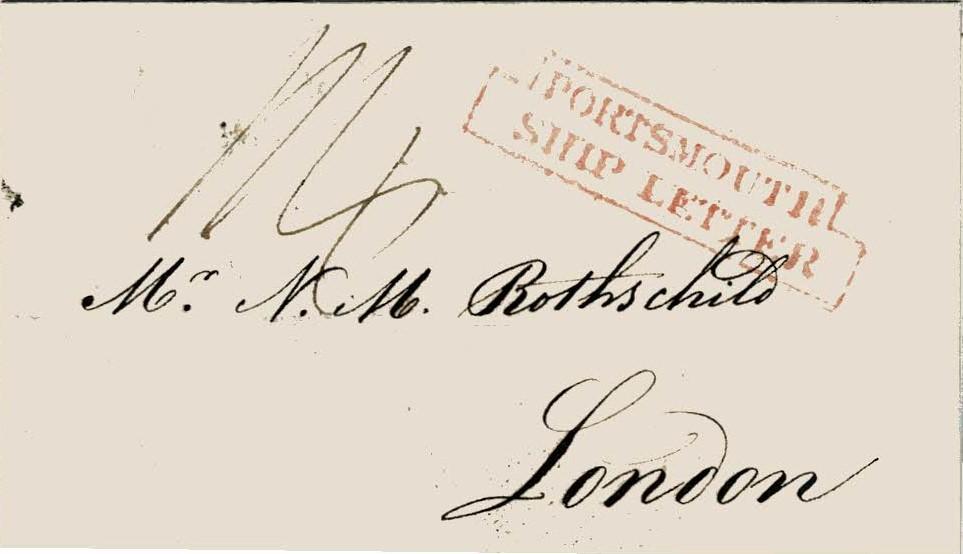 PORTSMOUTH
SHIP LETTER
Mr. N. M. Rothschild
London